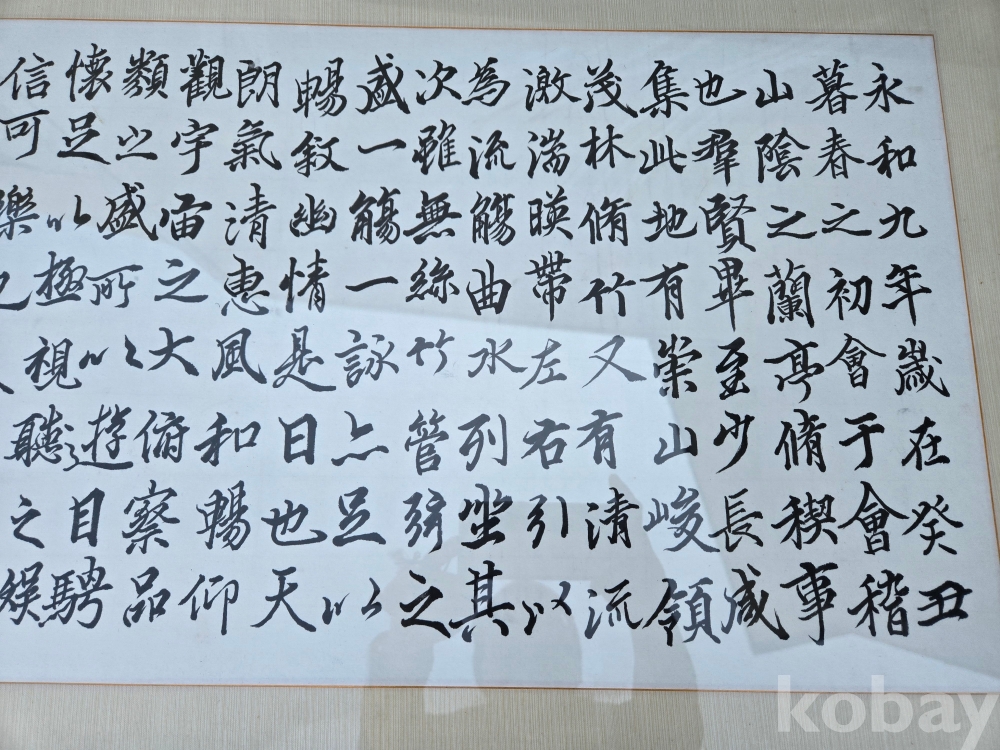 永和九年歲在癸丑
暮春之初會于會稽
山陰之蘭亭脩稧事
也羣賢畢至少長咸
集此地有崇山峻領
茂林脩竹又有清流
激湍暎帶左右引以
為流觴曲水列坐其
次雖無絲竹管弦之
盛一觴一詠亦足以
暢敘幽情是日也天
朗氣清惠風和暢仰
觀宇宙之大俯察品
類之盛所以遊目騁
懷足以極視聽之娛
信可樂也
kobay